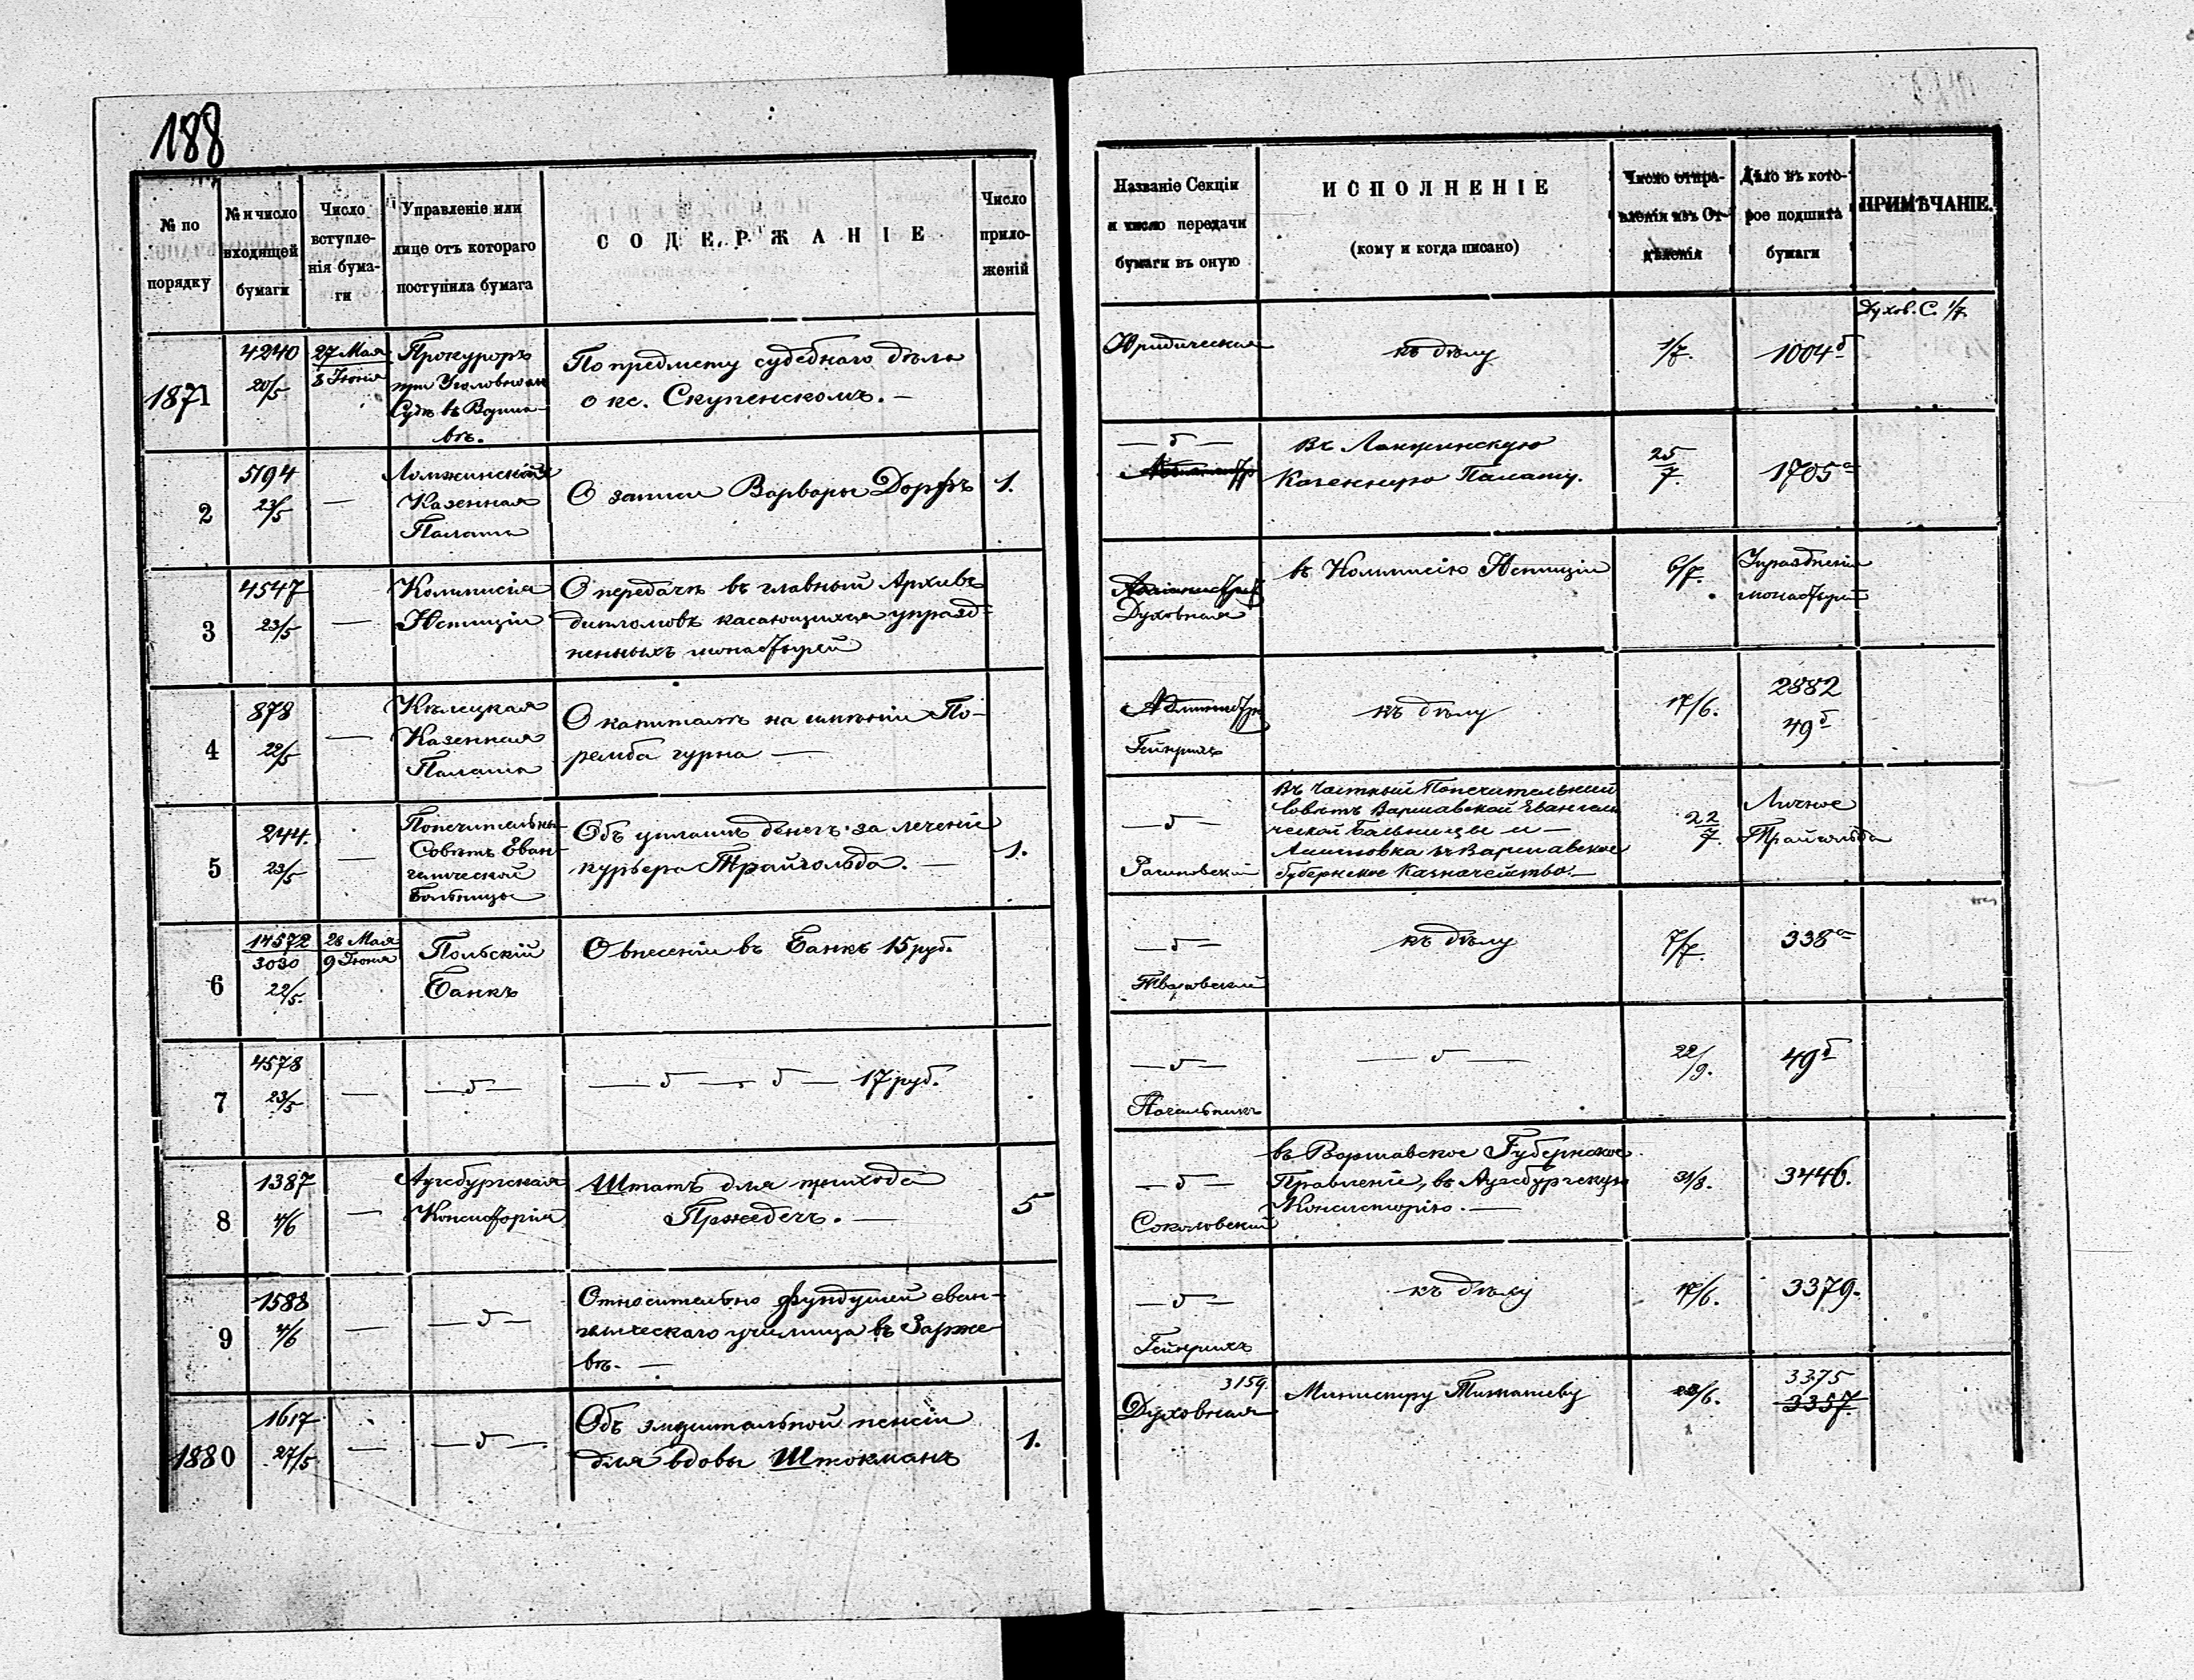 188
№ по порядку
№ и число входящей бумаги
Число вступле-
нія бума-
ги
Управленіе или
лице отъ котораго
поступила бумага
СОДЕРЖАНІЕ
Число
прило-
женій
Названіе Секціи
и число передачи
бумаги въ оную
ИСПОЛНЕНІЕ
(кому и когда писано)
Число отпра-
вленія изъ От-
дѣленія
Дѣло въ кото-
рое подшита
бумаги
ПРИМѢЧАНІЕ.
1871
4240
20/5
27 Мая
8 Іюня
Прокуроръ
при Уголовномъ
Судѣ въ Варша-
вѣ.
По предмету судебнаго дѣла
о кс. Скупенскомъ. —
Юридическая
къ дѣлу
1/7.
1004 б
Духов. С. 1/7
2
5194
23/5
—
Ломжинская
Казенная
Палата
О записи Варвары Дорфъ
1.
— б —
Въ Ломжинскую
Казенную Палату.
25
7.
1705 а
3
4547
23/5
—
Коммисія
Юстиціи
О передачѣ въ главный Архивъ
дипломовъ касающихся упразд-
ненныхъ монастырей
Духовная
въ Коммисію Юстиціи
6/7.
Упраздненія
монастырей
4
878
22/5
—
Кѣлецкая
Казенная
Палата
О капиталѣ на имѣніи По-
ремба гурна —
Админстр
Гейнрихъ
къ дѣлу
17/6.
2882
49 б
5
244.
23/5
—
Попечительны
Совѣтъ Еван-
гелической
Больницы
Объ уплатѣ денегъ за леченіе
курьера Трайгольда. —
1.
— б —
Въ Частный Попечительный
Совѣтъ Варшавской Евангели
ческой Больницы и —
Ассигновка въ Варшавское
Губернское Казначейство. —
22
7.
Личное
Трайгольда
6
14572
3030
22/5.
28 Мая
9 Іюня
Польскій
Банкъ
О внесеніи въ Банкъ 15 руб.
— б —
къ дѣлу
7/7.
338 а
7
4578
23/5
—
— б —
— б — б — 17 руб.
— б —
Начальникъ
— б —
22/9.
49 б
8
1387
4/6
—
Аугсбургская
Консисторія
Штатъ для прихода
Пржедечъ. —
5
— б —
Соколовскій
въ Варшавское Губернское
Правленіе, въ Аугсбургскую
Консисторію. —
31/8.
3446.
9
1588
4/6
—
— б —
Относительно фундушей еван-
гелическаго училища въ Зарже
вѣ. —
— б —
Гейнрихъ
къ дѣлу
17/6.
3379.
1880
1617
27/5
—
— б —
Объ эмеритальной пенсіи
для вдовы Штокманъ
1.
3159
Духовная
Министру Тимашеву
23/6.
3375
3357.